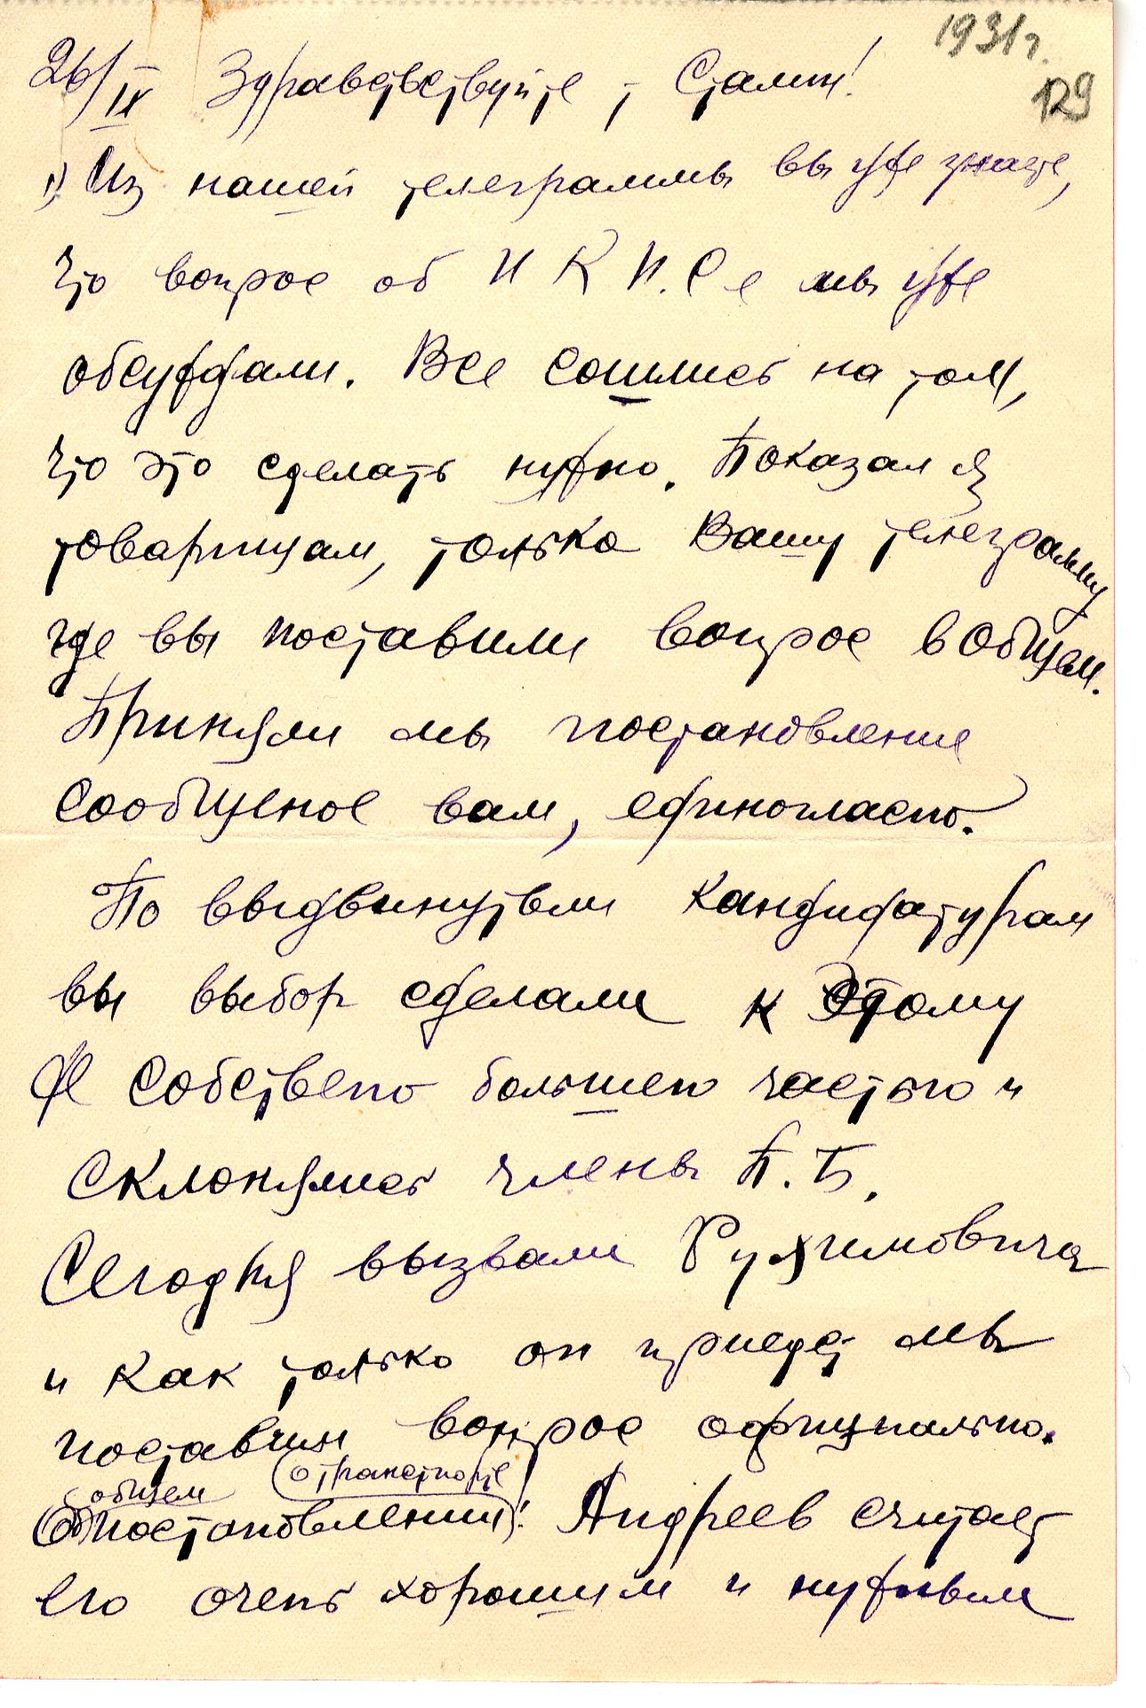 1931 г.
129
26/IX Здравствуйте, т Сталин!
1) Из нашей телеграммы вы уже знаете,
что вопрос об Н К И. С е мы уже
обсуждали. Все сошлись на том,
что это сделать нужно. Показал я
товарищам, только Вашу телеграмму
где вы поставили вопрос в общем.
Приняли мы постановление
сообщеное вам, единогласно.
По выдвинутым кандидатурам
вы выбор сделали к этому
же собствено большею частью и
склонялись члены П. Б.
Сегодня вызвали Рухимовича
и как только он приедет мы
поставим вопрос официально.
общем о транспорте
Об постановлении: Андреев считает
его очень хорошим и нужным